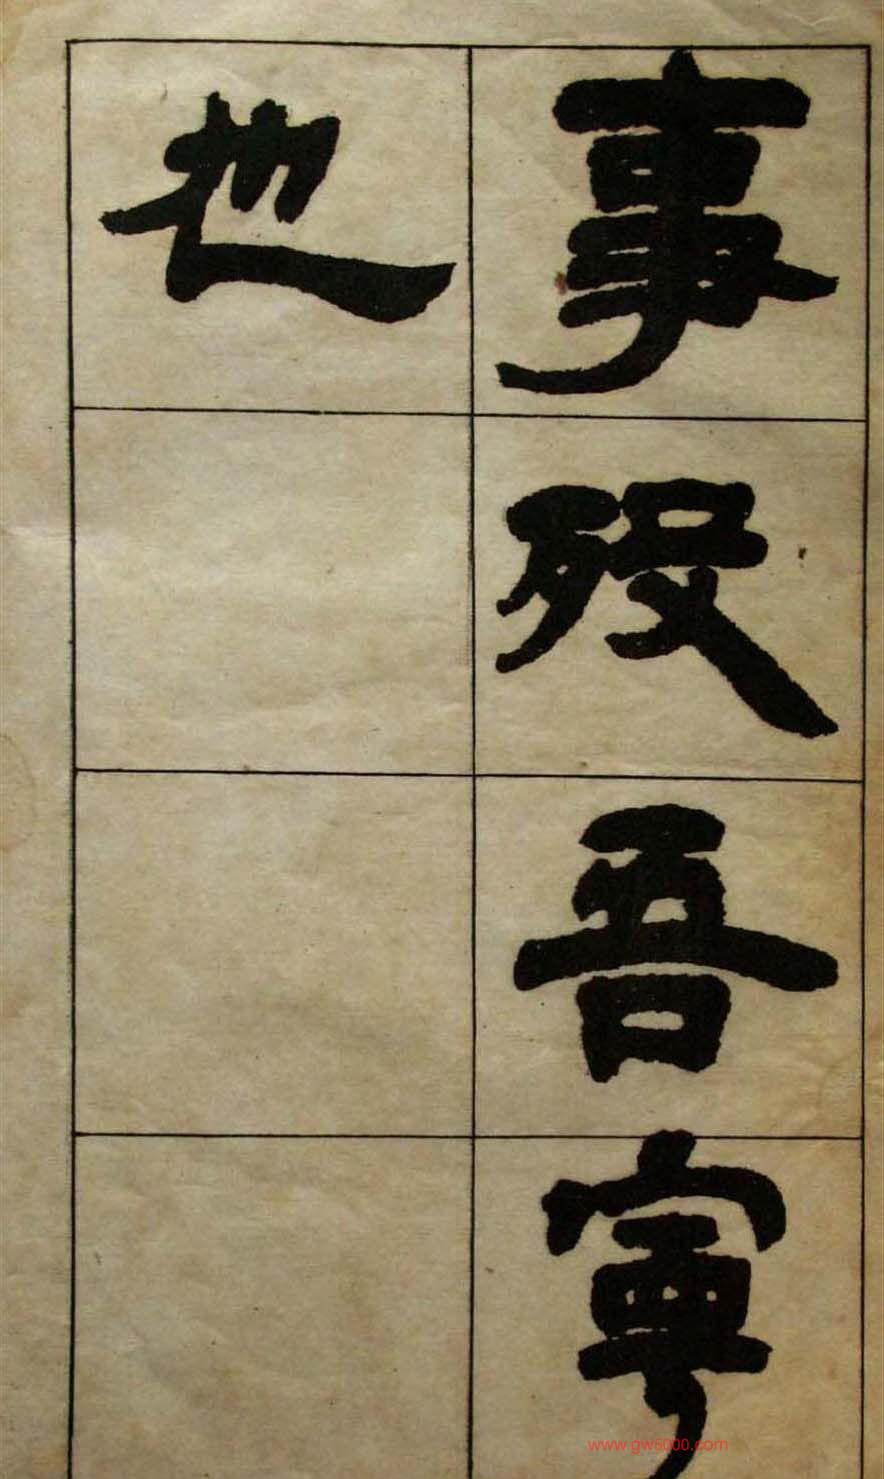 事歿吾寍
也
www.gw5000.com